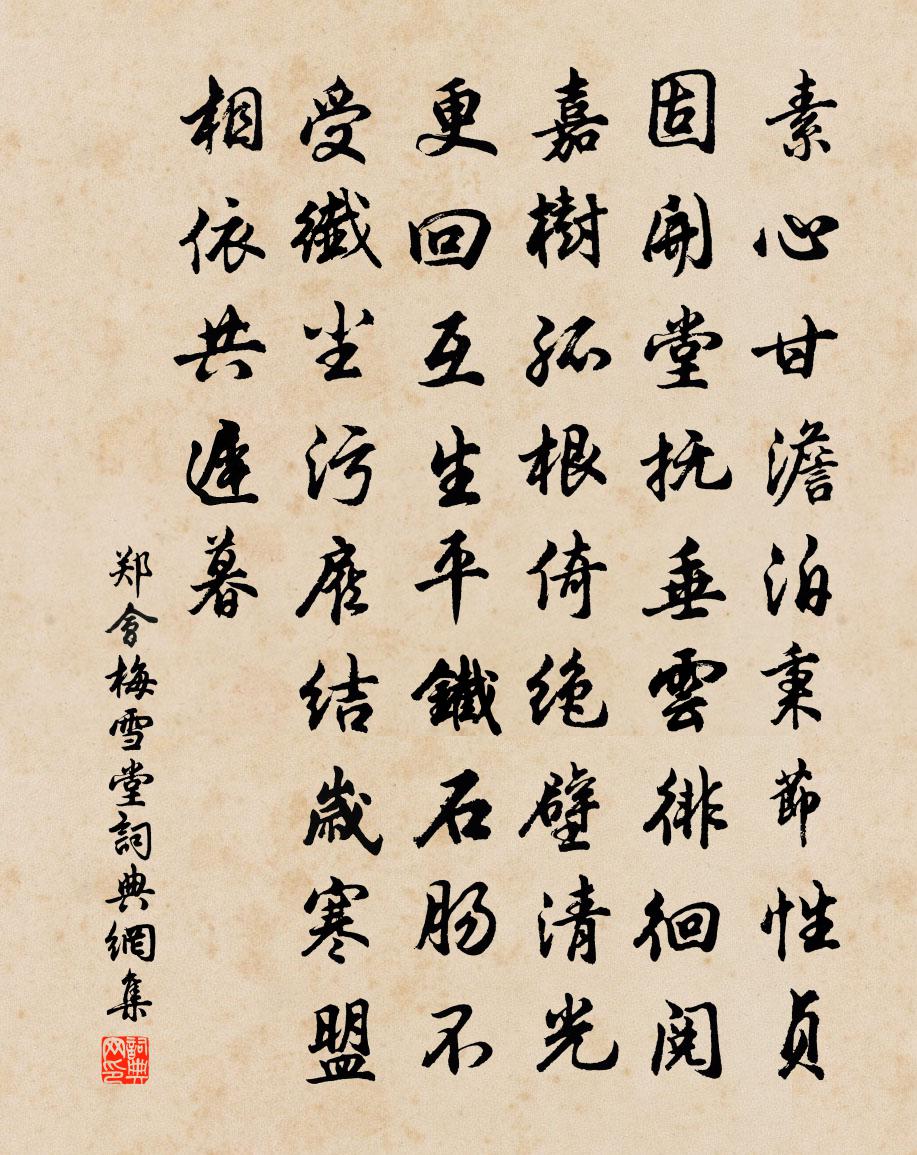 素心甘澹泊秉節性貞
固開堂抚垂雲徘徊閱
嘉樹孤根倚绝壁清光
更回互生平鐵石肠不
受纖尘污雁结歲寒盟
相依共遲暮
郑會梅雪堂詞典網集
詞典网印